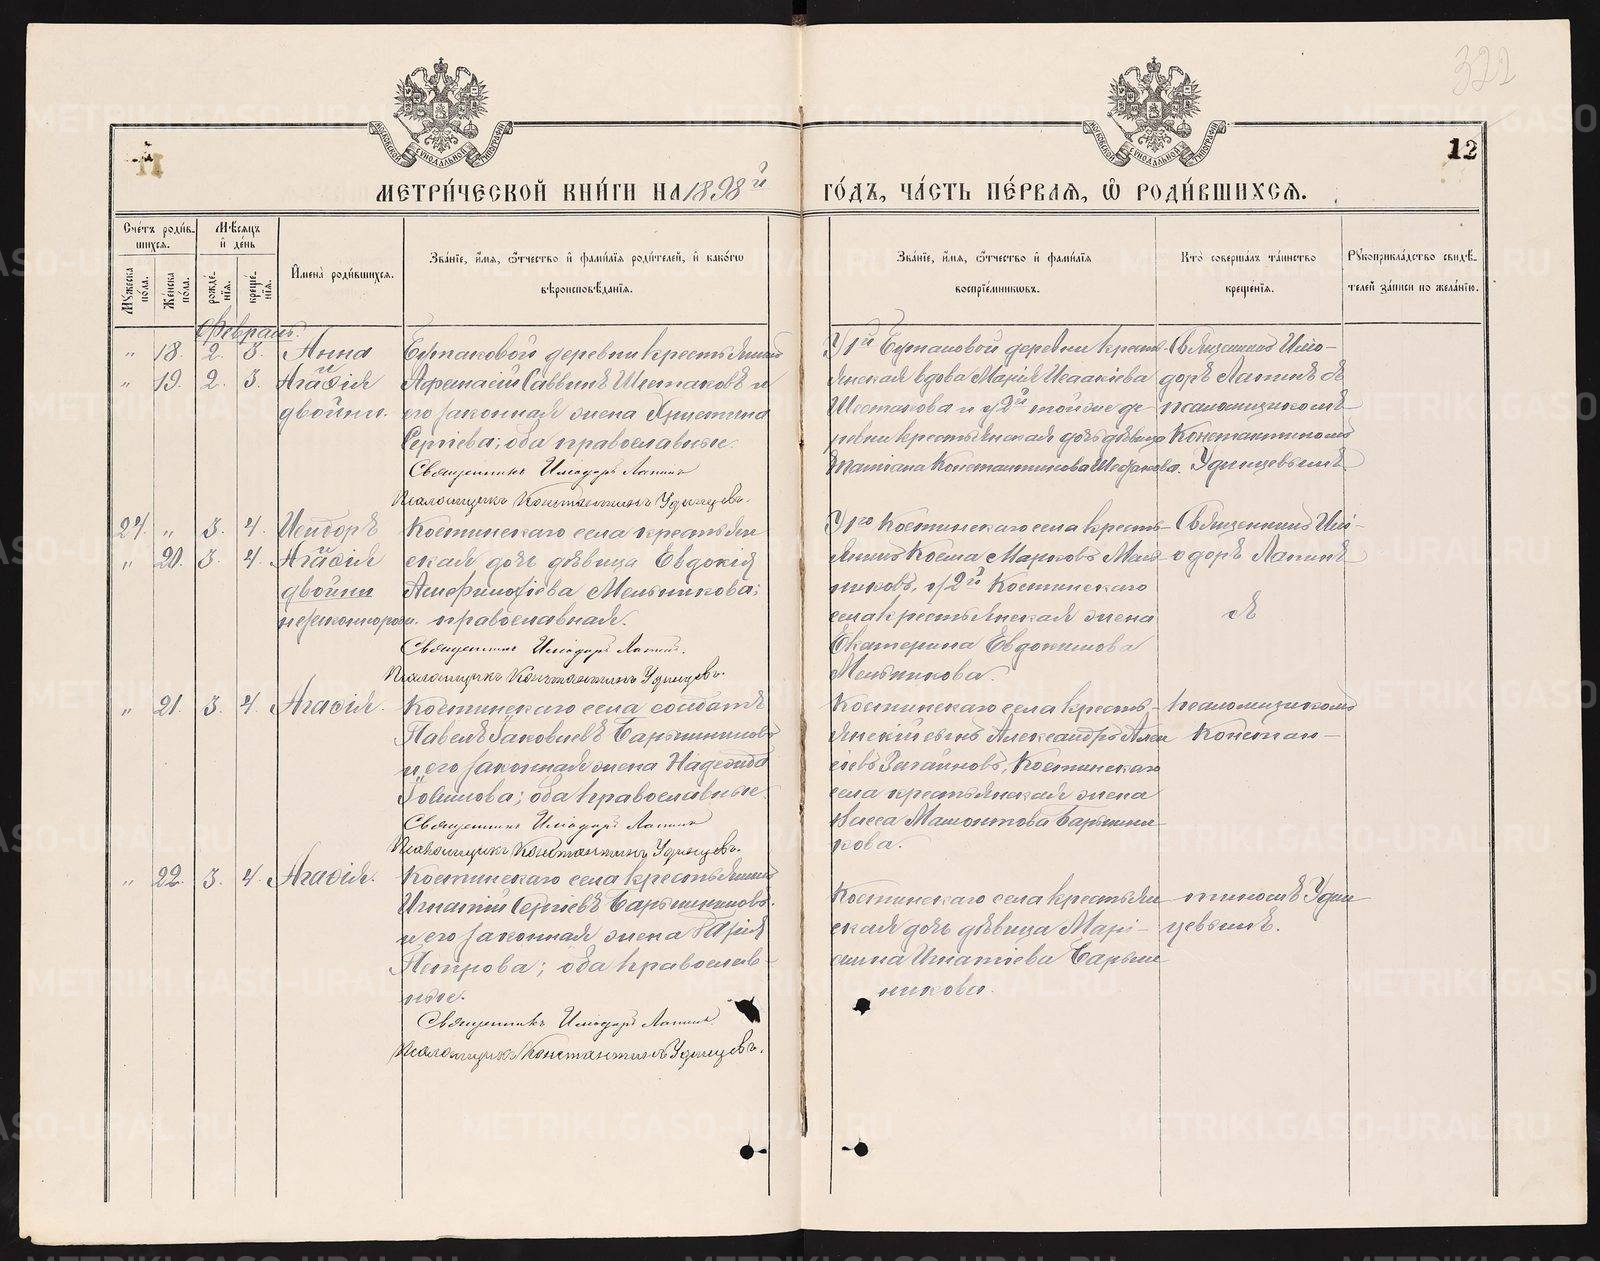 322
12
МЕТРИ́ЧЕСКОЙ КНИ́ГИ НА 1898й ГО́ДЪ, ЧА́СТЬ ПЕ́РВАѦ, Ѡ РОДИ́ВШИХСѦ.
Счетъ роди́в-
шихся.
Мѣсяцъ
и день
Му́жеска
по́ла.
Же́нска
по́ла.
рожде́-
нія.
креще́-
нія.
Имена роди́вшихся.
Зва́ніе, имя, ѻтчество и фами́лія роди́телей, и како́гѡ
вѣроисповѣ́данія.
Зва́ніе, имя, ѻтчество и фами́лія
воспріе́мниковъ.
Кто̀ соверша́лъ та́инство
креще́нія.
Рꙋкоприкла́дство свидѣ́-
телей за́писи по жела́нію.
Февраль.
„ 18. 2. 3. Анна
„ 19. 2. 3. Агаѳія
двойни.
Ермаковой деревни крестьянинъ
Аѳанасій Саввинъ Шестаковъ и
его законная жена Христина
Сергіева; оба православные.
Священникъ Илиодоръ Лапинъ
Псаломщикъ Константинъ Удинцевъ.
У 1й Ермаковой деревни кресть-
янская вдова Марія Исаакіева
Шестакова и у 2й той же де-
ревни крестьянская дочь дѣвица
Татіана Константинова Шестакова.
Священникъ Илио-
доръ Лапинъ съ
псаломщикомъ
Константиномъ
Удинцевымъ.
24. „ 3. 4. Исидоръ
„ 20. 3. 4. Агаѳія
двойни
незаконнорожд.
Костинскаго села крестьян-
ская дочь дѣвица Евдокія
Мельникова;
православная.
Священникъ Илиодоръ Лапинъ.
Псаломщикъ Константинъ Удинцевъ.
У 1го Костинскаго села кресть-
янинъ Косма Марковъ Мель-
никовъ, у 2й Костинскаго
села крестьянская жена
Екатерина Евдокимова
Мельникова.
Священникъ Или-
одоръ Лапинъ
съ
„ 21. 3. 4. Агаѳія.
Костинскаго села солдатъ
Павелъ Іаковлевъ Барышниковъ
и его законная жена Надежда
Іовлилова; оба православные.
Священникъ Илиодоръ Лапинъ
Псаломщикъ Константинъ Удинцевъ.
Костинскаго села кресть-
янскій сынъ Александръ Алек
сіевъ Загайновъ, Костинскаго
села крестьянская жена
Васса Мамонтова Барышни-
кова.
псаломщикомъ
Констан-
„ 22. 3. 4. Агаѳія.
Костинскаго села крестьянинъ
Игнатій Сергіевъ Барышниковъ
и его законная жена Марія
Петрова; оба православ-
ные.
Священникъ Илиодоръ Лапинъ
Псаломщикъ Константинъ Удинцевъ.
Костинскаго села крестьян-
ская дочь дѣвица Марі-
амна Игнатіева Барыш-
никова.
тиномъ Удин-
цевымъ.
METRIKI.GASO-URAL.RU